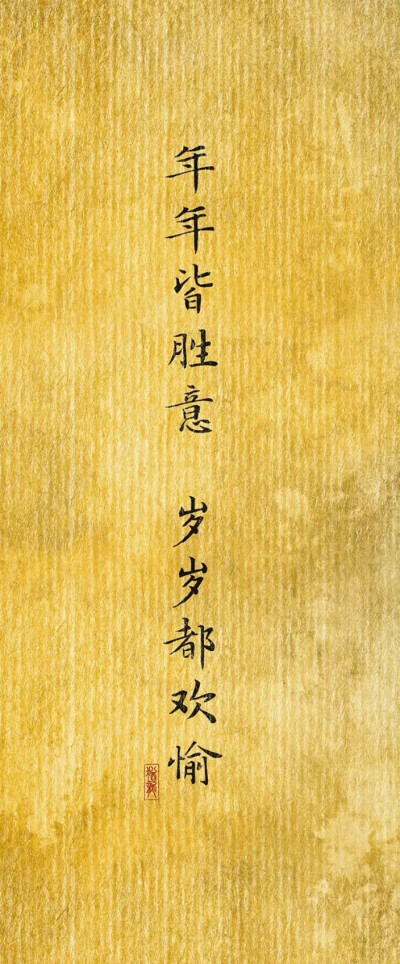 年年皆胜意 岁岁都欢愉